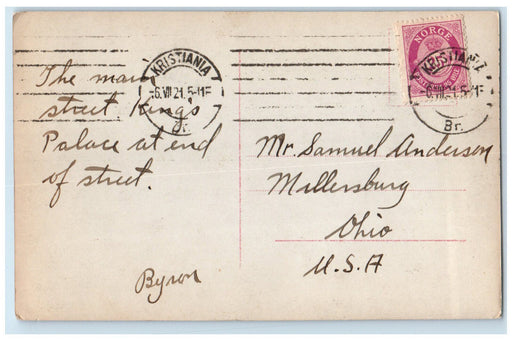 NORGE
KRISTIANIA
6.VII.21.5-11F
Br.
KRISTIANIA
6.VII.21.5-11F
Br.
The main
street King's
Palace at end
of street.
Byron
Mr. Samuel Anderson
Millersburg
Ohio
U.S.A